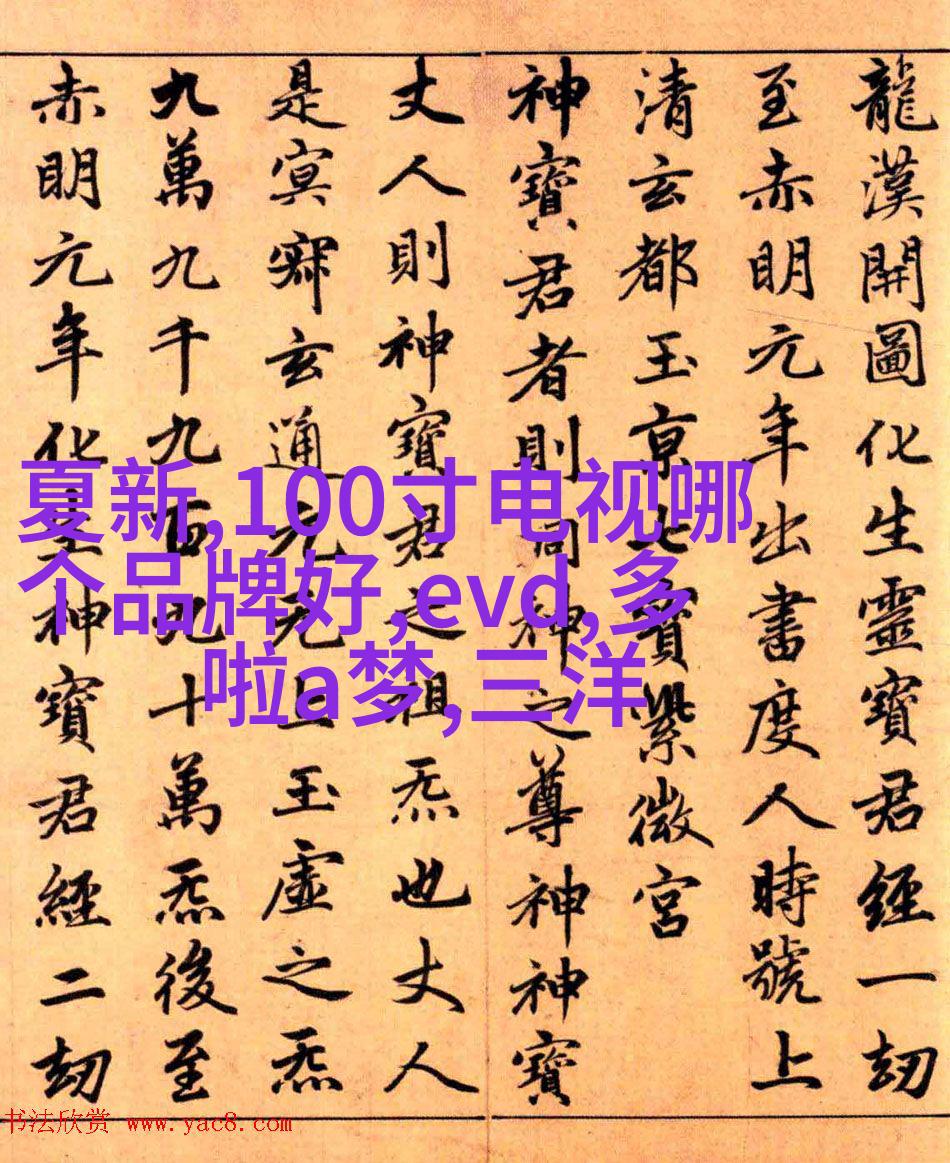 龍漢開圖化生靈寶君經一劫
至赤明元年出書度人時號上
清玄都玉京七寶紫微宮
神寶君者則洞神之尊神神寶
丈人則神寶君之祖炁也丈人
是冥寂玄通元无上玉虛之炁
九萬九千九百九十萬炁後至
赤明元年化生神寶君經二劫
夏新,100寸电视哪
个品牌好,evd,多
啦a梦,三洋
书法欣赏 www.yac8.com